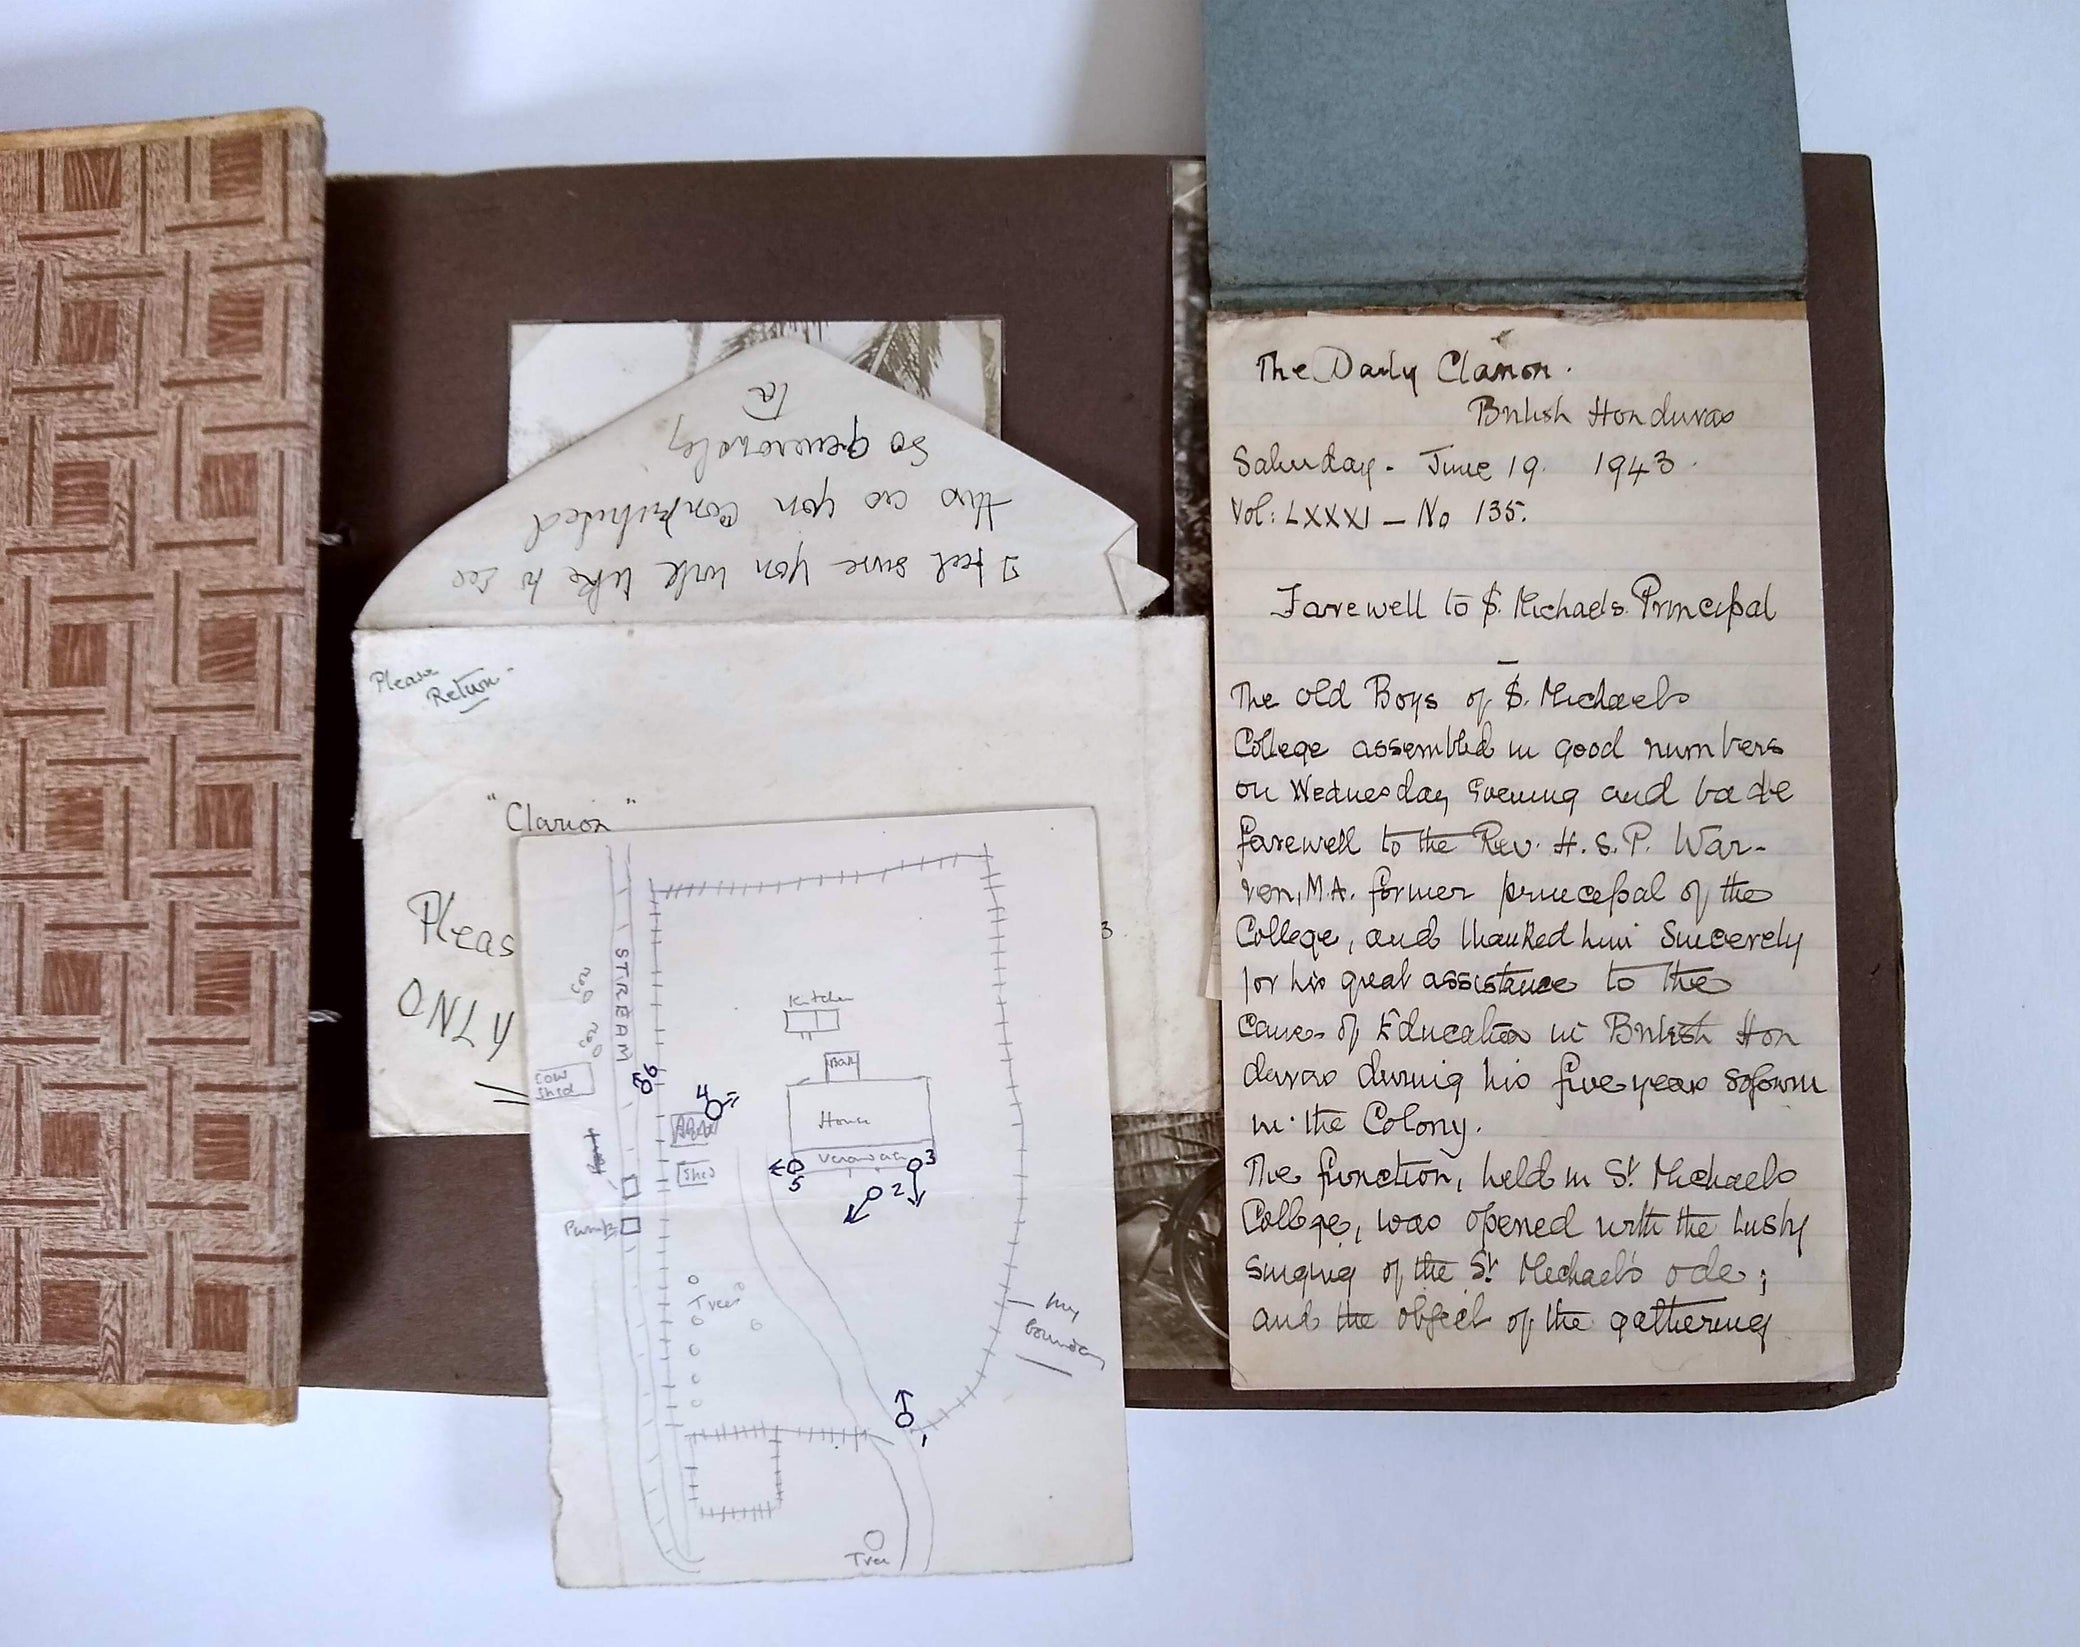 I feel sure you will like to see
this as you contributed
so generously
Please
Return
"Clarion"
Pleas
ONLY
3
STREAM
Cow
Cow
Cow
Shed
Kitchen
House
Verandah
Shed
Pump
Trees
my
boundary
Tree
1
2
3
4
5
6
The Daily Clarion.
British Honduras
Saturday - June 19. 1943.
Vol: LXXXI - No 135.
Farewell to S. Michaels Principal
The Old Boys of S. Michaels
College assembled in good numbers
on Wednesday evening and bade
farewell to the Rev. H. S. P. War-
ren, M.A. former principal of the
College, and thanked him sincerely
for his great assistance to the
cause of Education in British Hon
duras during his five years sojourn
in the Colony.
The function, held in St Michaels
College, was opened with the lusty
singing of the St Michael's ode;
and the object of the gathering